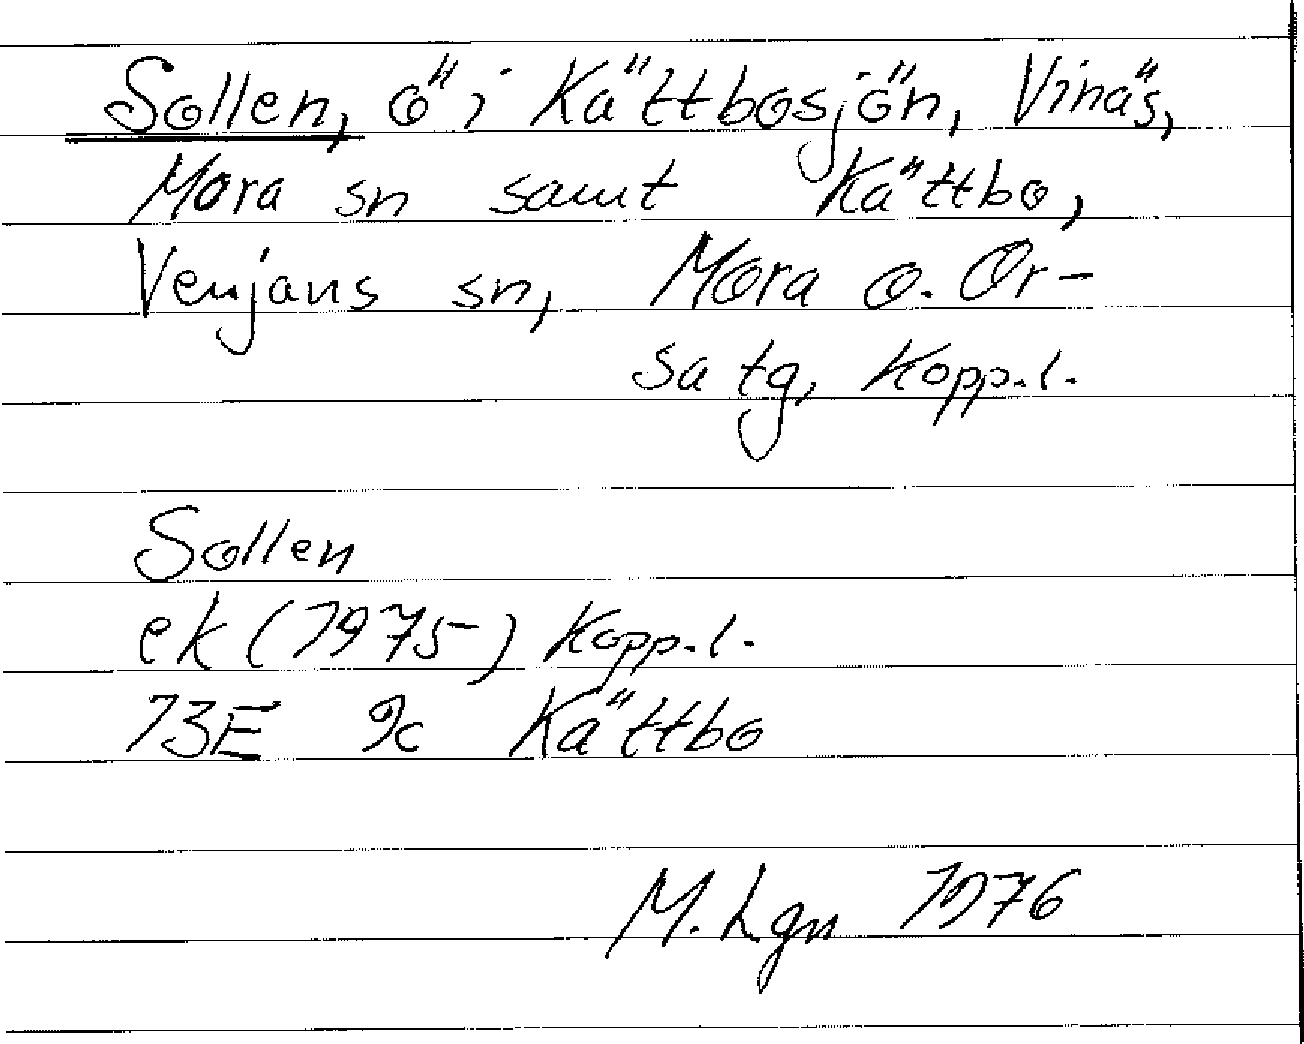 Sollen, ö i Kättbosjön, Vinäs,
Mora sn samt Kättbo,
Venjans sn, Mora o. Or-
sa tg, Kopp.l.
Sollen
ek (1975) Kopp.l.
13E 9c Kättbo
M. Lgn 1976